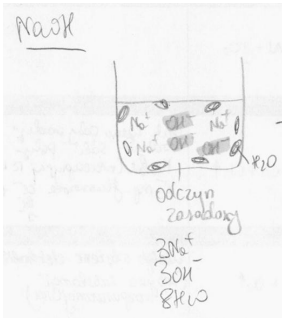 NaOH
Na⁺ OH⁻ Na⁺
Na⁺ OH⁻ OH⁻
H₂O
odczyn
zasadowy
3Na⁺
3OH⁻
8H₂O